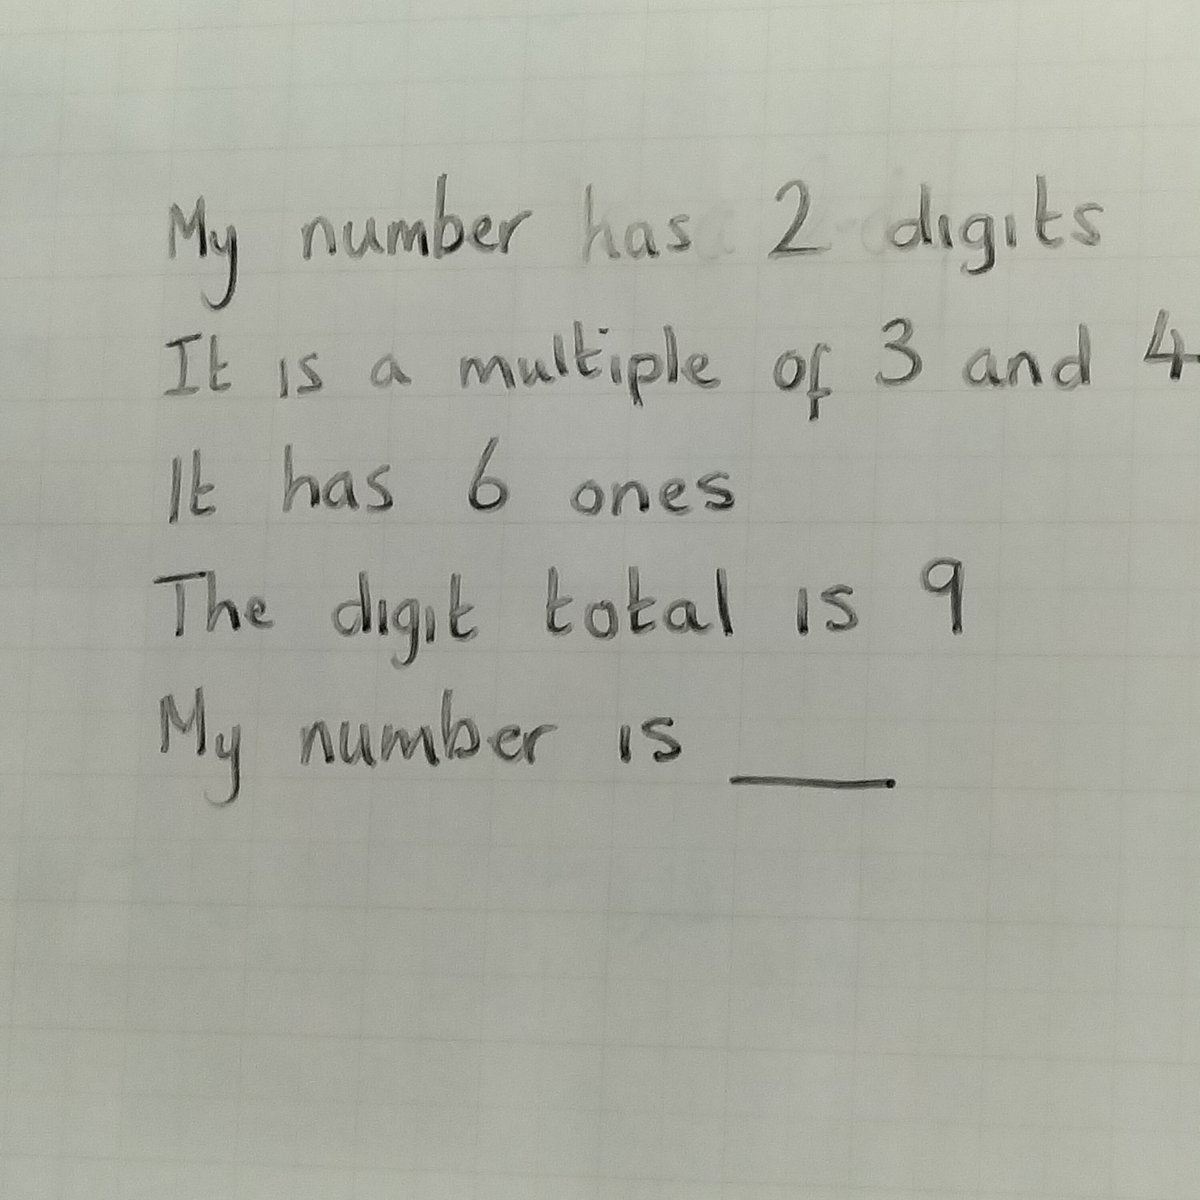 My number has 2 digits
It is a multiple of 3 and 4
It has 6 ones
The digit total is 9
My number is ___